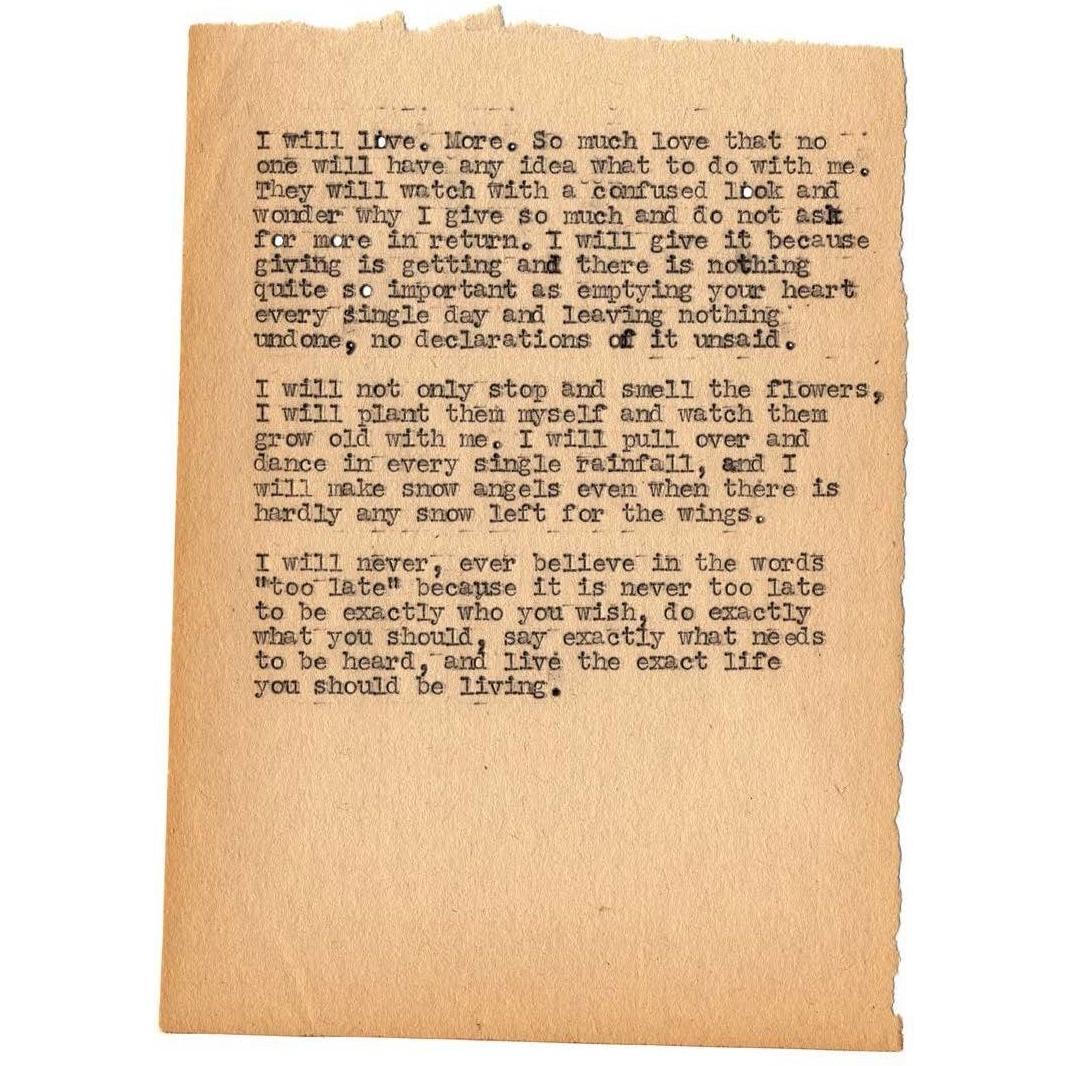 I will love. More. So much love that no
one will have any idea what to do with me.
They will watch with a confused look and
wonder why I give so much and do not ask
for more in return. I will give it because
giving is getting and there is nothing
quite so important as emptying your heart
every single day and leaving nothing
undone, no declarations of it unsaid.
I will not only stop and smell the flowers,
I will plant them myself and watch them
grow old with me. I will pull over and
dance in every single rainfall, and I
will make snow angels even when there is
hardly any snow left for the wings.
I will never, ever believe in the words
"too late" because it is never too late
to be exactly who you wish, do exactly
what you should, say exactly what needs
to be heard, and live the exact life
you should be living.